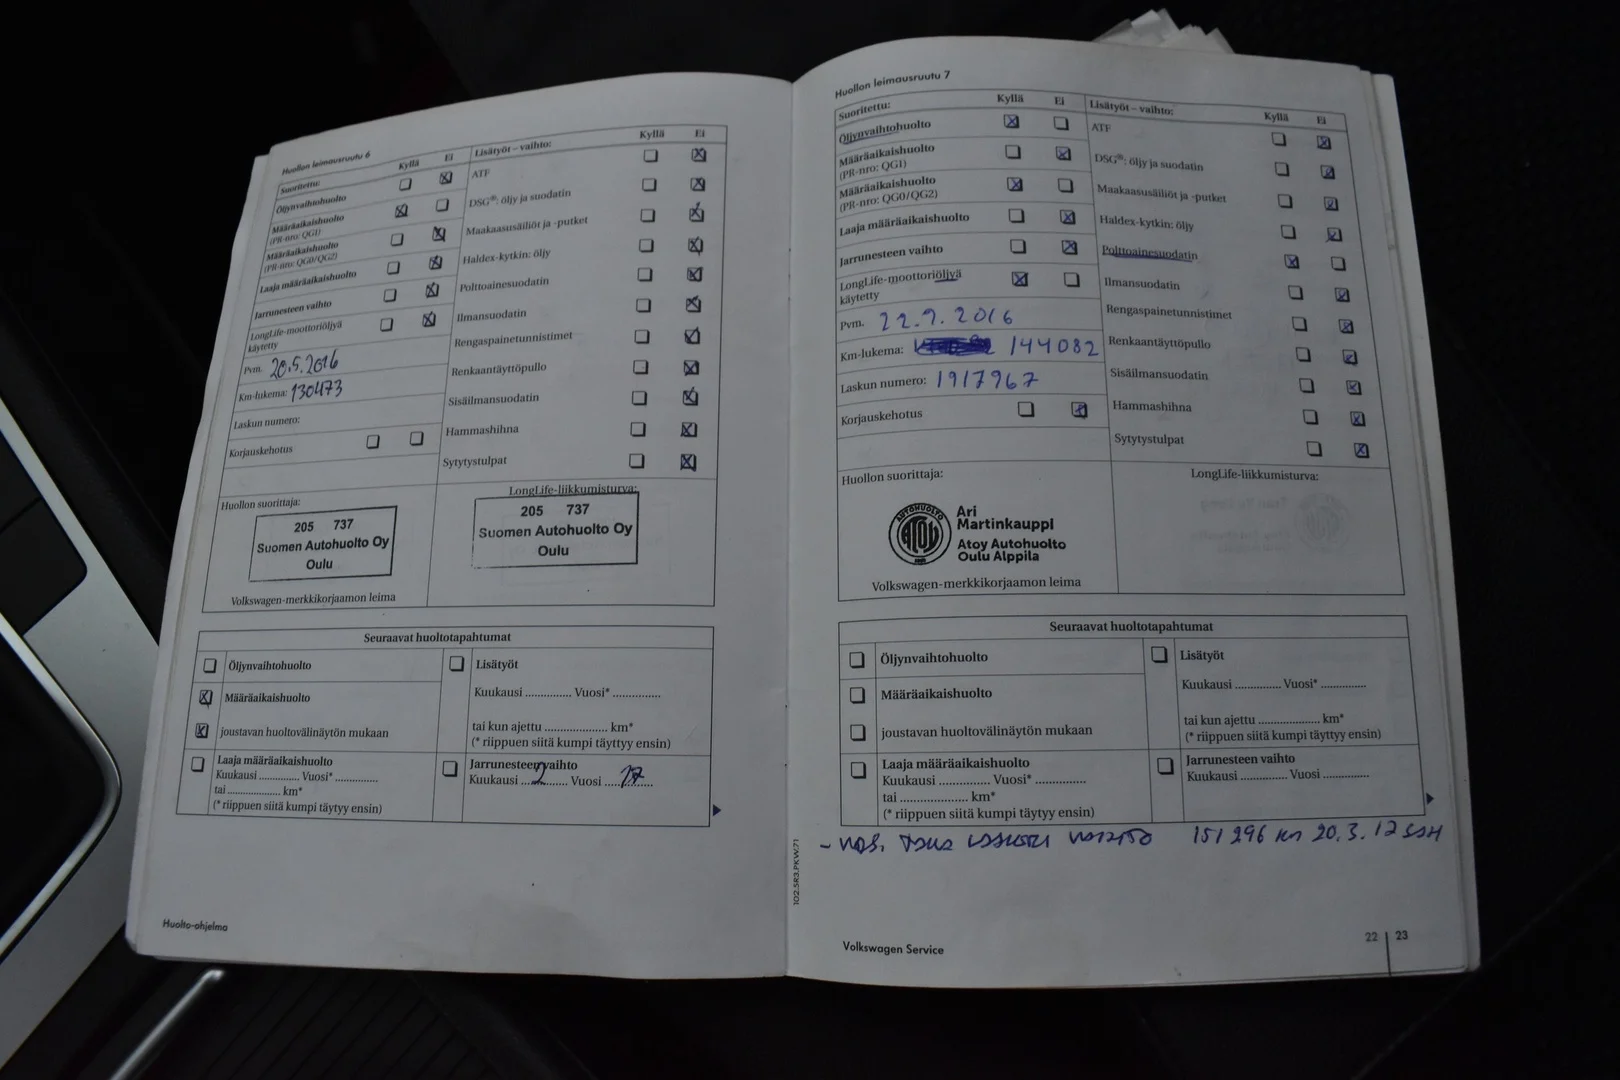 Huollon leimausruutu 6
Suoritettu: Kyllä Ei
Öljynvaihtohuolto
Määräaikaishuolto
(PR-nro: QG1)
Määräaikaishuolto
(PR-nro: QG0/QG2)
Laaja määräaikaishuolto
Jarrunesteen vaihto
LongLife-moottoriöljyä
käytetty
Pvm. 20.5.2016
Km-lukema: 130473
Laskun numero:
Korjauskehotus
Lisätyöt – vaihto: Kyllä Ei
ATF
DSG®: öljy ja suodatin
Maakaasusäiliöt ja -putket
Haldex-kytkin: öljy
Polttoainesuodatin
Ilmansuodatin
Rengaspainetunnistimet
Renkaantäyttöpullo
Sisäilmansuodatin
Hammashihna
Sytytystulpat
Huollon suorittaja:
205 737
Suomen Autohuolto Oy
Oulu
Volkswagen-merkkikorjaamon leima
LongLife-liikkumisturva:
205 737
Suomen Autohuolto Oy
Oulu
Seuraavat huoltotapahtumat
Öljynvaihtohuolto
Määräaikaishuolto
joustavan huoltovälinäytön mukaan
Laaja määräaikaishuolto
Kuukausi .............. Vuosi* ...............
tai .................... km*
(* riippuen siitä kumpi täytyy ensin)
Lisätyöt
Kuukausi .............. Vuosi* ...............
tai kun ajettu .................... km*
(* riippuen siitä kumpi täyttyy ensin)
Jarrunesteen vaihto
Kuukausi ....2...... Vuosi .....17......
Huolto-ohjelma
Huollon leimausruutu 7
Suoritettu: Kyllä Ei
Öljynvaihtohuolto
Määräaikaishuolto
(PR-nro: QG1)
Määräaikaishuolto
(PR-nro: QG0/QG2)
Laaja määräaikaishuolto
Jarrunesteen vaihto
LongLife-moottoriöljyä
käytetty
Pvm. 22.9.2016
Km-lukema: 144082
Laskun numero: 1917967
Korjauskehotus
Lisätyöt – vaihto: Kyllä Ei
ATF
DSG®: öljy ja suodatin
Maakaasusäiliöt ja -putket
Haldex-kytkin: öljy
Polttoainesuodatin
Ilmansuodatin
Rengaspainetunnistimet
Renkaantäyttöpullo
Sisäilmansuodatin
Hammashihna
Sytytystulpat
Huollon suorittaja:
AUTOHUOLTO
ATOY
Ari
Martinkauppi
Atoy Autohuolto
Oulu Alppila
Volkswagen-merkkikorjaamon leima
LongLife-liikkumisturva:
Seuraavat huoltotapahtumat
Öljynvaihtohuolto
Määräaikaishuolto
joustavan huoltovälinäytön mukaan
Laaja määräaikaishuolto
Kuukausi .............. Vuosi* ...............
tai .................... km*
(* riippuen siitä kumpi täytyy ensin)
Lisätyöt
Kuukausi .............. Vuosi* ...............
tai kun ajettu .................... km*
(* riippuen siitä kumpi täyttyy ensin)
Jarrunesteen vaihto
Kuukausi .............. Vuosi ..............
151 296 km 20.3.17
102.5R3.PKW.71
Volkswagen Service
22 | 23